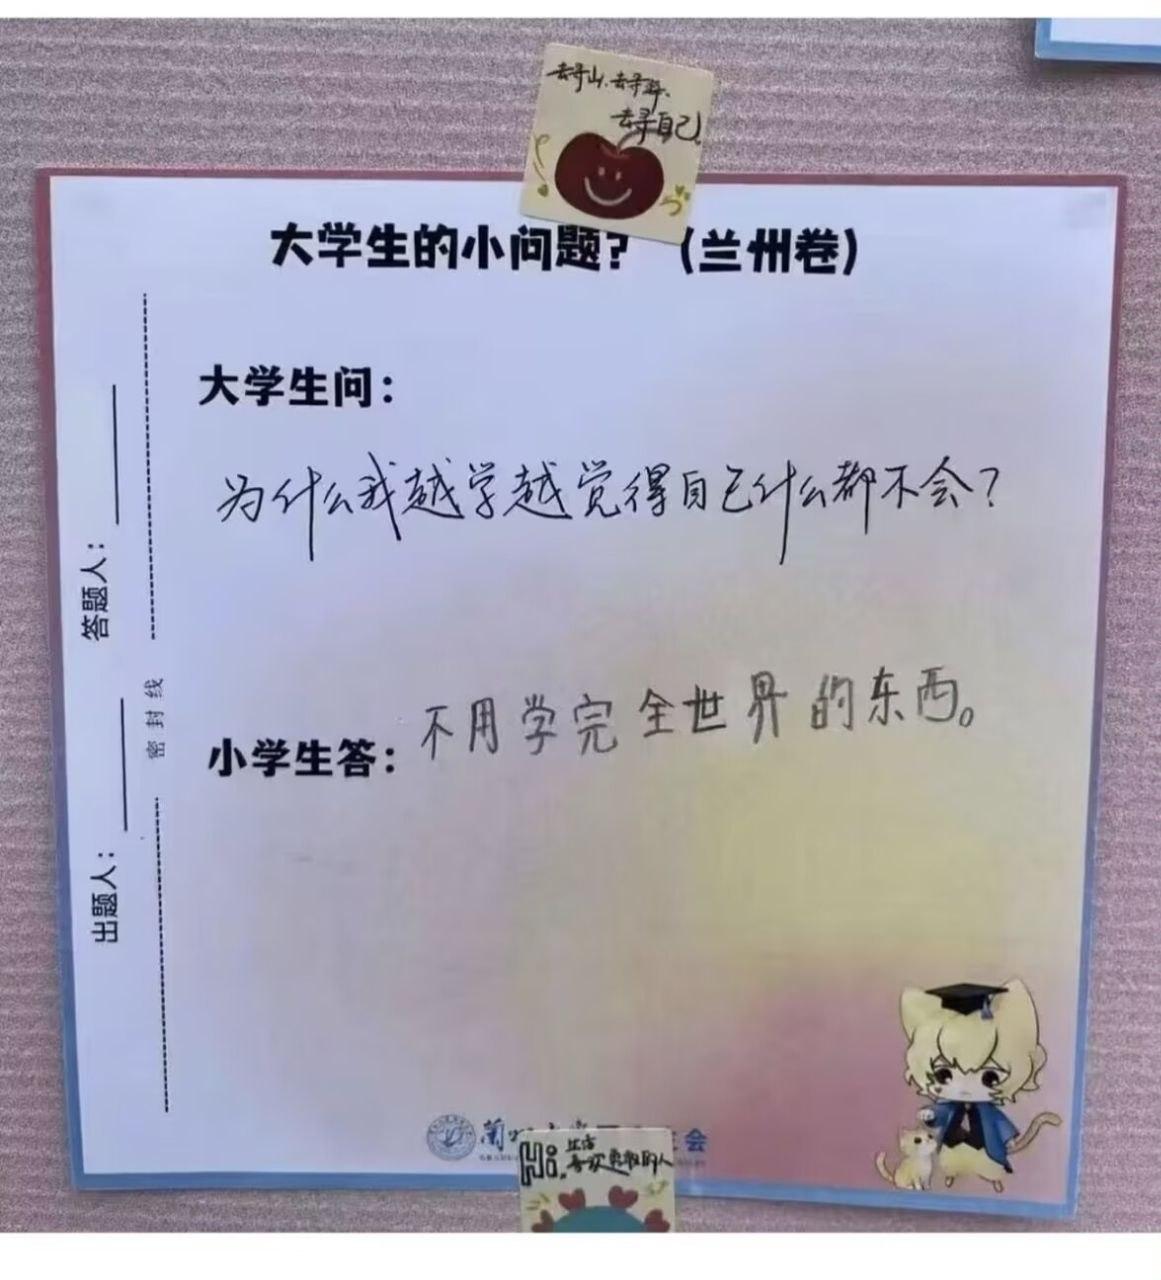 去寻山、去寻海、
去寻自己。
大学生的小问题？（兰州卷）
大学生问：
为什么我越学越觉得自己什么都不会？
小学生答：不用学完全世界的东西。
答题人：
密封线
出题人：
Hi,生活
喜欢勇敢的人